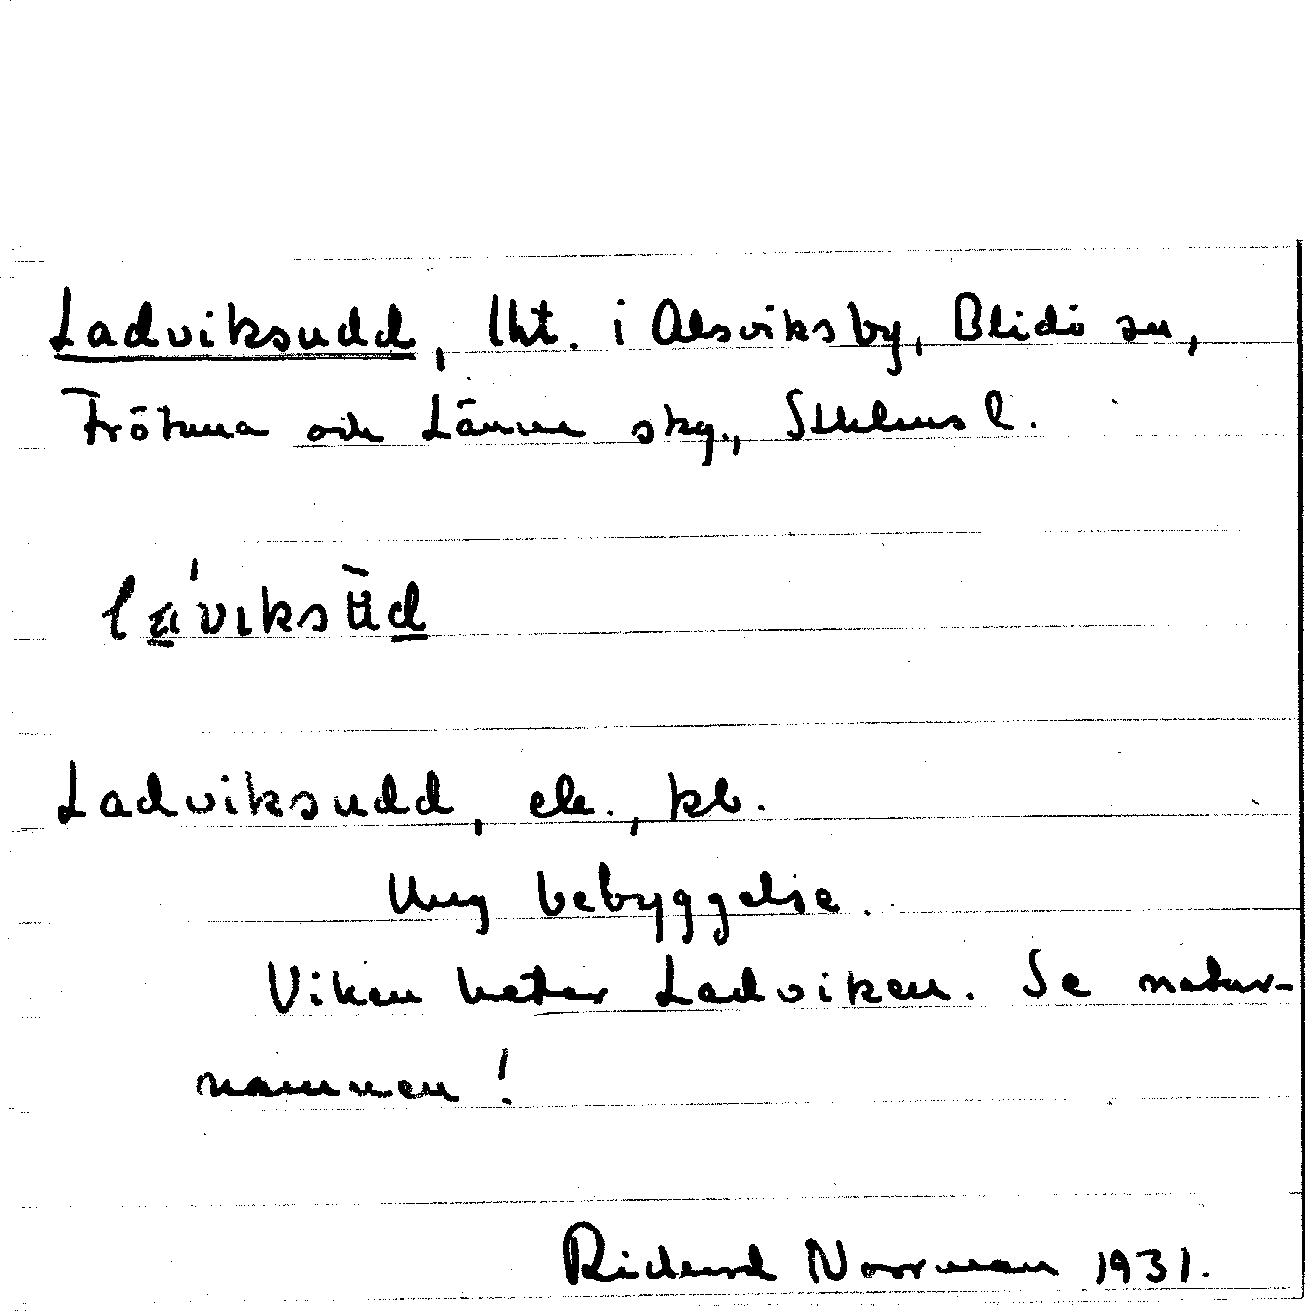 Ladviksudd, lht. i Alsviksby, Blidö sn,
Frötuna och Länna skg., Sthlms l.
Ladviksudd, ek., kb.
Ung bebyggelse.
Viken heter Ladviken. Se natur-
namnen!
Rickard Norrman 1931.